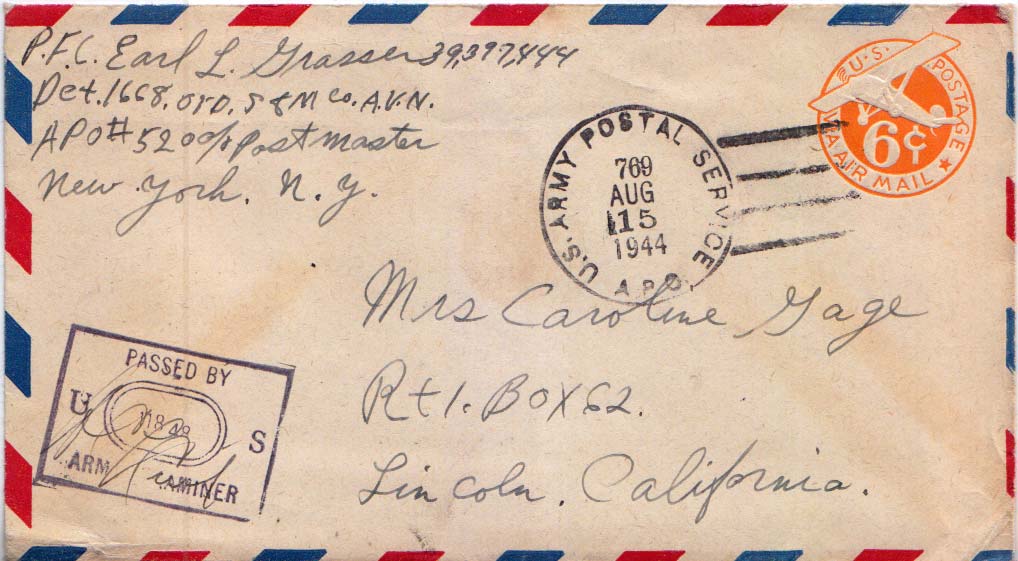 P.F.C. Earl L. Grasser 39,397,444
Det. 1668. ORD. S & M Co. A.V.N.
APO # 520 c/o Post master
New York. N. Y.
U.S. ARMY POSTAL SERVICE
769
AUG
15
1944
A P O
U.S. POSTAGE
6¢
VIA AIR MAIL
Mrs Caroline Gage
Rt 1. Box 62.
Lincoln. California.
PASSED BY
U S
ARMY EXAMINER